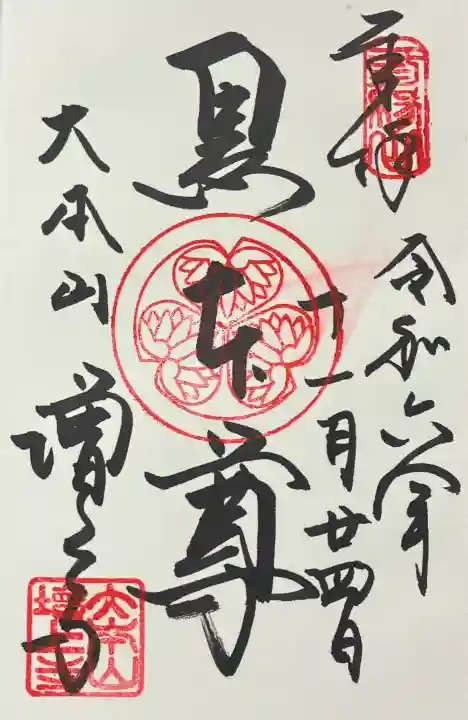 奉拝
令和六年
十一月廿四日
黒本尊
大本山
増上寺
大本山
増上寺